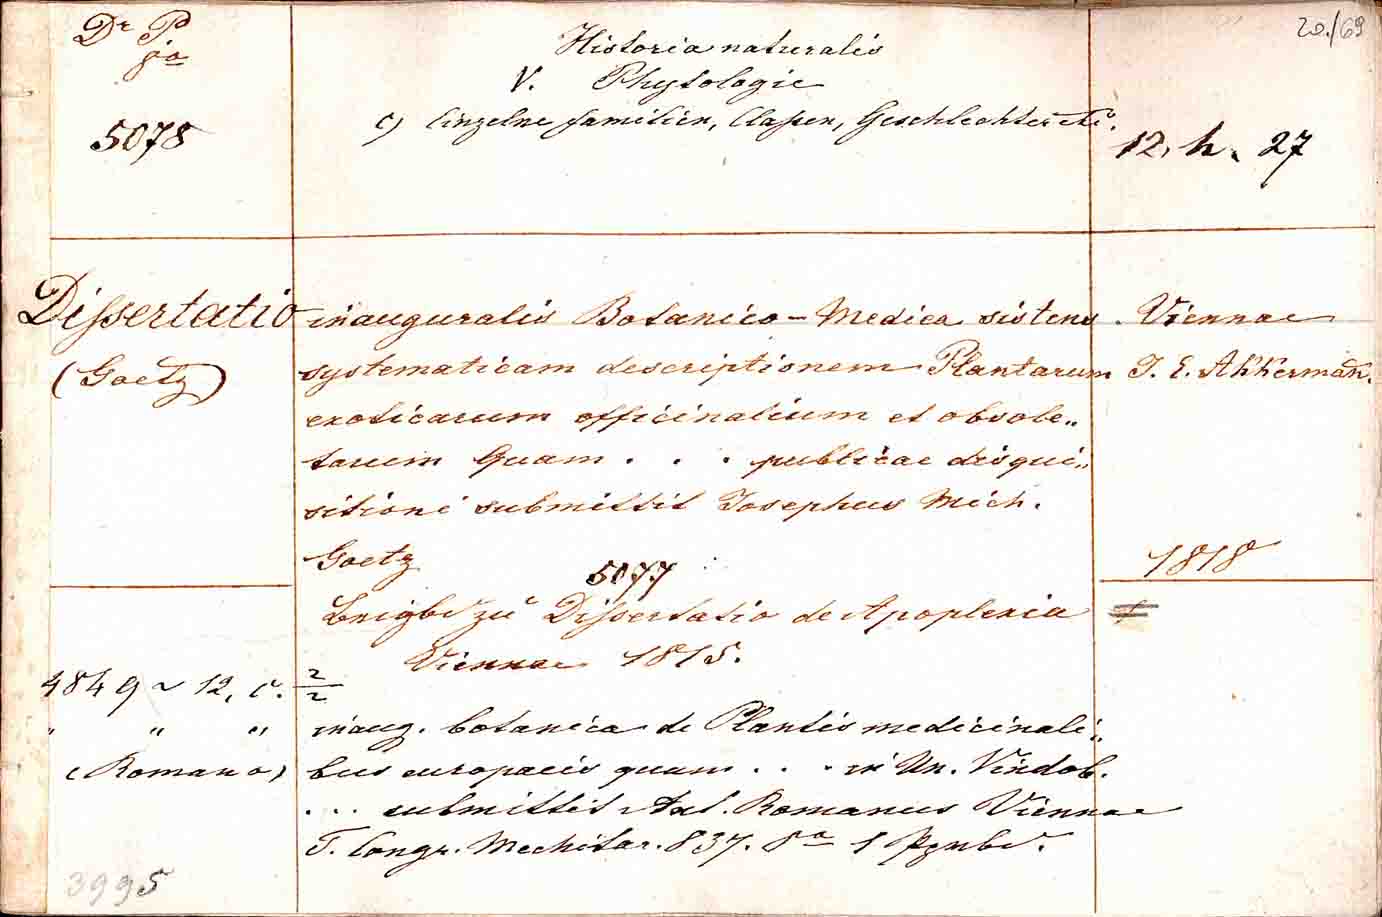 Dr P
8o
5078
Historia naturalis
V. Phytologie
c) Einzelne Familien, Classen, Geschlechter etc.
20./69
12. h. 27
Dissertatio
(Goetz)
inauguralis Botanico-Medica sistens
systematicam descriptionem Plantarum
exoticarum officinalium et obsole„
tarum Quam . . . publicae disqui„
sitioni submittit Josephus Mich.
Goetz
Viennae
T. E. Akkermañ.
1818
5077
zu Dissertatio de Apoplexia
Viennae 1815.
4849 ~ 12. c. 2/2
„ „ „ inaug. botanica de Plantis medicinali„
(Romano) bus europaeis quam . . . in Un. Vindob.
... submittit Ant. Romanus Viennae
T. Congr. Mechitar. 837. 8o 1
3995